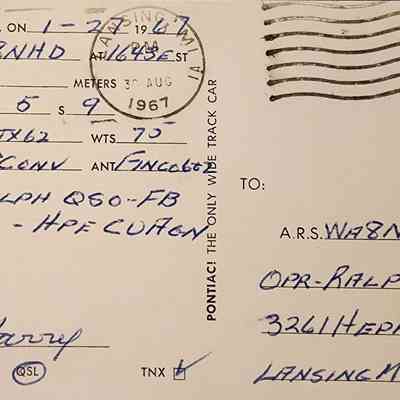 ON 1-27 1967
8NHD AT 1645 E ST
METERS
5 S 9
TX62 WTS 75
CONV ANT
LPH QSO-FB
- HPE CUAGN
Harry
QSL TNX
LANSING, MI
PM
30 AUG
1967
PONTIAC! THE ONLY WIDE TRACK CAR
TO:
A.R.S. WA8N
OPR-RALP
3261 HEP
LANSING M